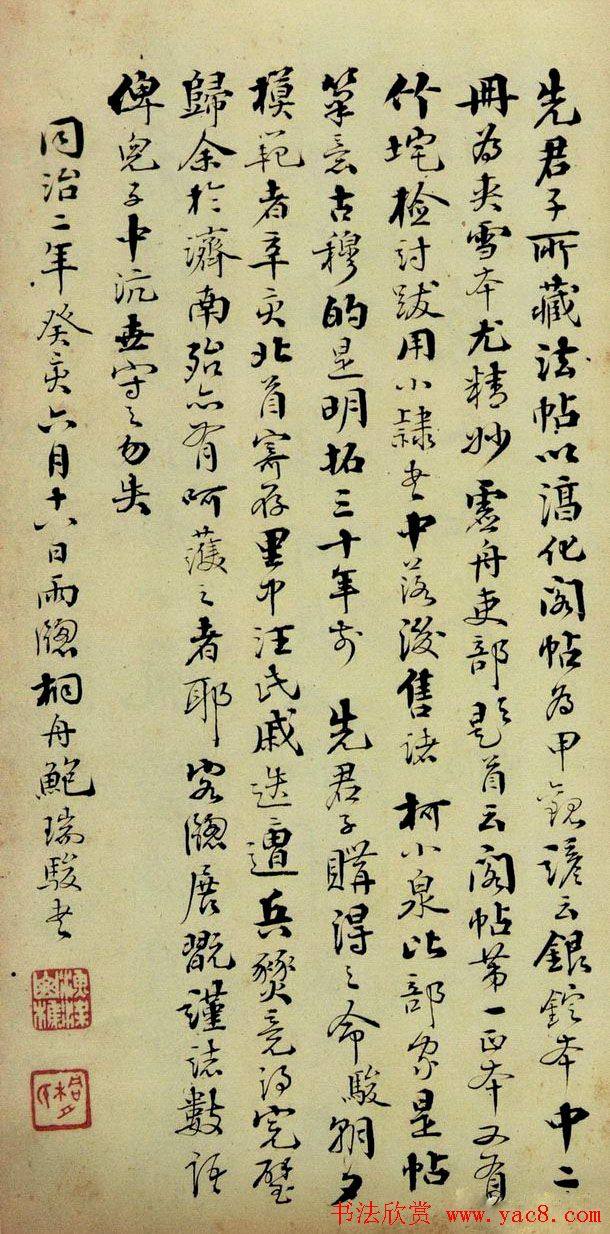 先君子所藏法帖以淳化閣帖為甲観諺云銀錠本中二
冊為夾雪本尤精妙虛舟吏部題首云閣帖第一正本又有
竹垞檢討跋用小隸書中落後售諸柯小泉比部家是帖
筆意古穆的是明拓三十年前先君子購得之命駿朝夕
模範者辛亥北首寄存里中汪氏戚迭遭兵燹竟得完璧
歸余於濟南殆亦有呵護之者耶客窗展翫謹誌數語
俾兒子中沆世守之勿失
同治二年癸亥六月十八日雨窗桐舟鮑瑞駿書
书法欣赏 www.yac8.com